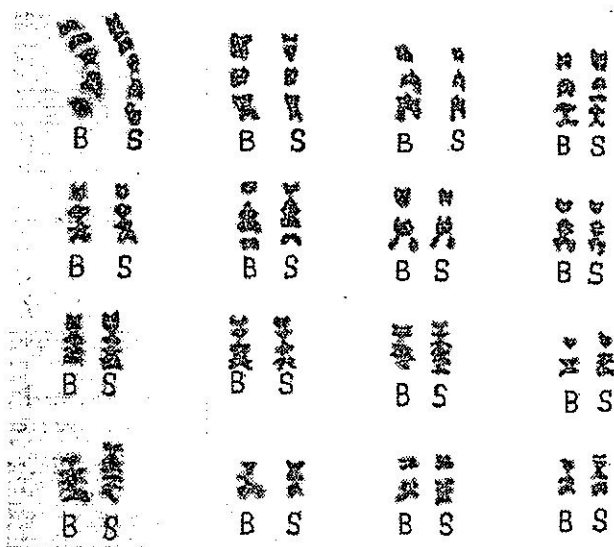 B S B S B S B S
B S B S B S B S
B S B S B S B S
B S B S B S B S